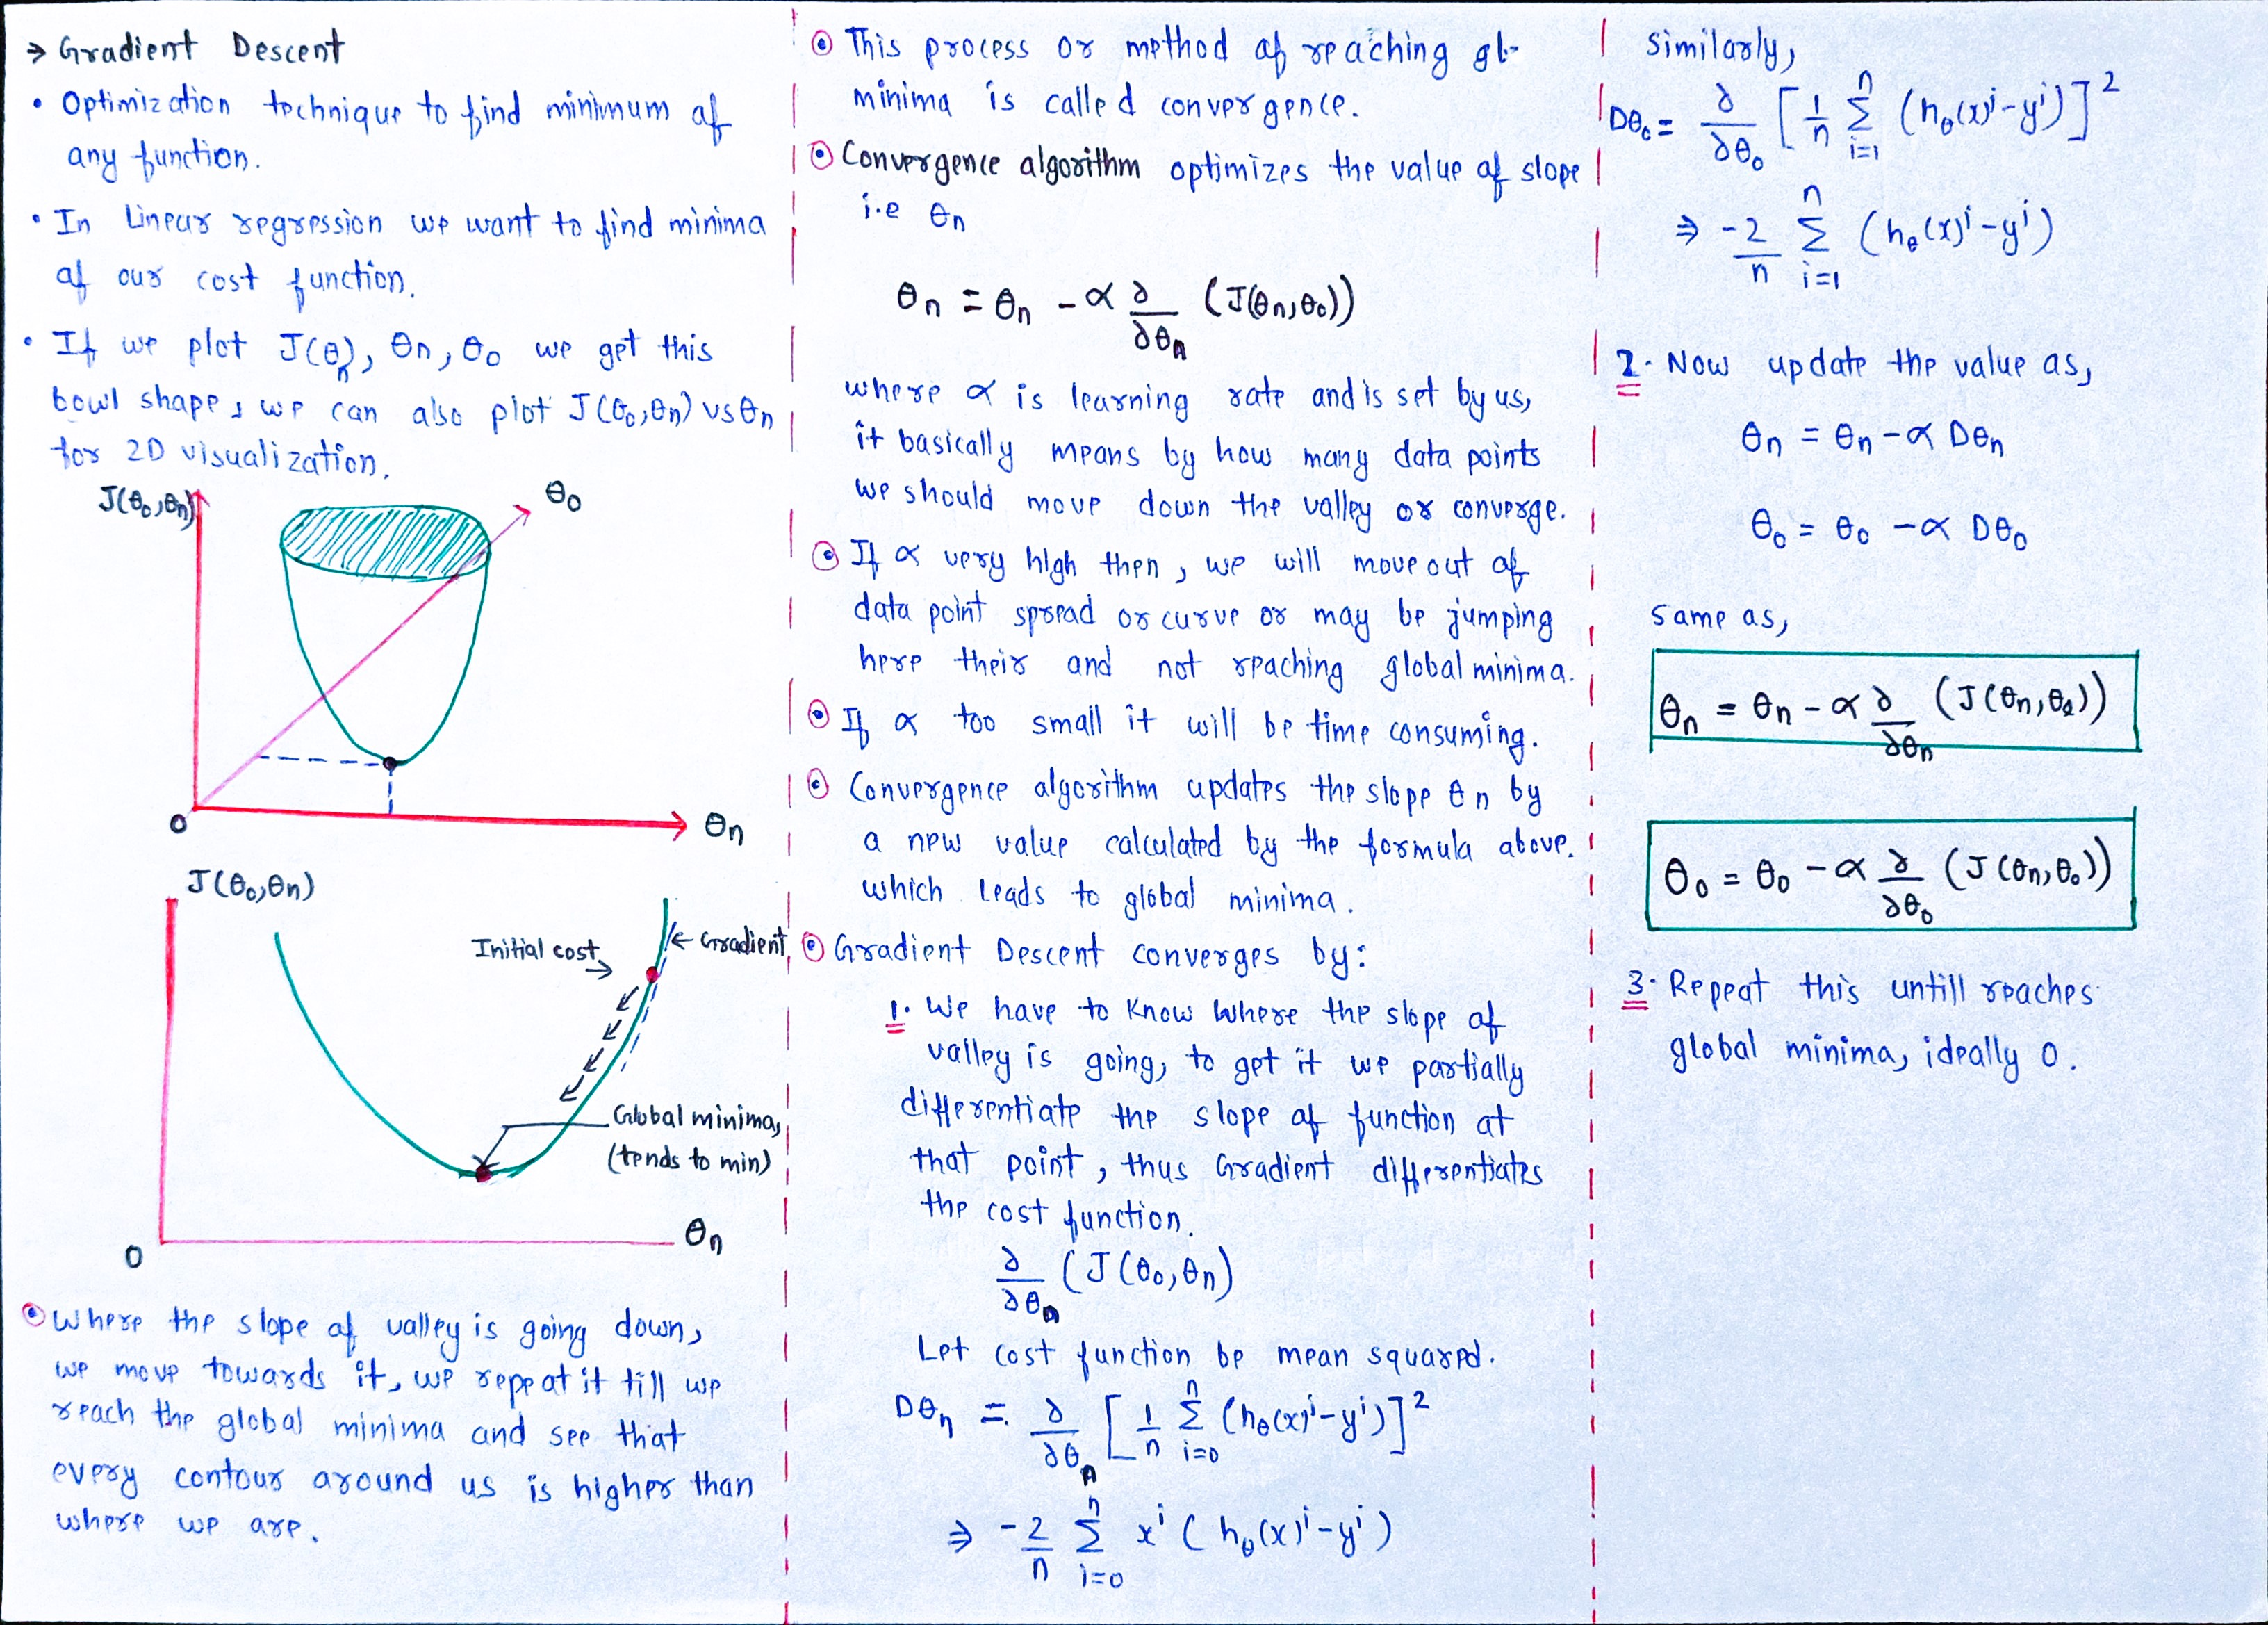 → Gradient Descent
• Optimization technique to find minimum of
any function.
• In Linear regression we want to find minima
of our cost function.
• If we plot J(θₙ), θn, θ₀ we get this
bowl shape, we can also plot J(θ₀,θn) vs θn
for 2D visualization.
J(θ₀,θn)
θ₀
0
θn
J(θ₀,θn)
Initial cost
← Gradient
Global minima,
(tends to min)
θn
0
⊙ Where the slope of valley is going down,
we move towards it, we repeat it till we
reach the global minima and see that
every contour around us is higher than
where we are.
⊙ This process or method of reaching gl-
minima is called convergence.
⊙ Convergence algorithm optimizes the value of slope
i.e θn
θn = θn - α ∂/∂θn (J(θn,θ₀))
where α is learning rate and is set by us,
it basically means by how many data points
we should move down the valley or converge.
⊙ If α very high then, we will move out of
data point spread or curve or may be jumping
here their and not reaching global minima.
⊙ If α too small it will be time consuming.
⊙ Convergence algorithm updates the slope θn by
a new value calculated by the formula above.
which leads to global minima.
⊙ Gradient Descent converges by:
1. We have to know where the slope of
valley is going, to get it we partially
differentiate the slope of function at
that point, thus Gradient differentiates
the cost function.
∂/∂θn (J(θ₀,θn)
Let cost function be mean squared.
Dθn = ∂/∂θn [1/n Σ_{i=0}^{n} (hθ(x)ⁱ-yⁱ)]²
⇒ -2/n Σ_{i=0}^{n} xⁱ (hθ(x)ⁱ-yⁱ)
similarly,
Dθ₀ = ∂/∂θ₀ [1/n Σ_{i=1}^{n} (hθ(x)ⁱ-yⁱ)]²
⇒ -2/n Σ_{i=1}^{n} (hθ(x)ⁱ-yⁱ)
2. Now update the value as,
θn = θn - α Dθn
θ₀ = θ₀ - α Dθ₀
same as,
θn = θn - α ∂/∂θn (J(θn,θ₀))
θ₀ = θ₀ - α ∂/∂θ₀ (J(θn,θ₀))
3. Repeat this untill reaches
global minima, ideally 0.